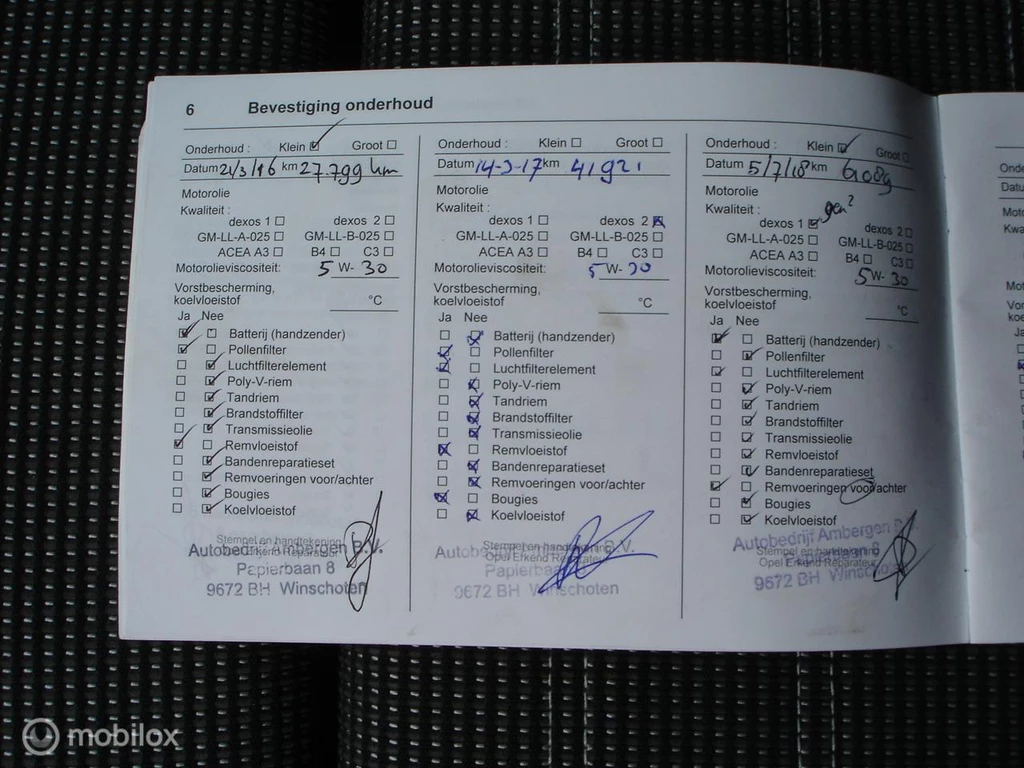 6 Bevestiging onderhoud
Onderhoud : Klein Groot
Datum 21/3/16 km 27.799 km
Motorolie
Kwaliteit :
dexos 1 dexos 2
GM-LL-A-025 GM-LL-B-025
ACEA A3 B4 C3
Motorolieviscositeit: 5 W- 30
Vorstbescherming,
koelvloeistof °C
Ja Nee
Batterij (handzender)
Pollenfilter
Luchtfilterelement
Poly-V-riem
Tandriem
Brandstoffilter
Transmissieolie
Remvloeistof
Bandenreparatieset
Remvoeringen voor/achter
Bougies
Koelvloeistof
Stempel en handtekening
Autobedrijf Ambergen B.V.
Papierbaan 8
9672 BH Winschoten
Onderhoud : Klein Groot
Datum 14-3-17 km 41921
Motorolie
Kwaliteit :
dexos 1 dexos 2
GM-LL-A-025 GM-LL-B-025
ACEA A3 B4 C3
Motorolieviscositeit: 5 W- 30
Vorstbescherming,
koelvloeistof °C
Ja Nee
Batterij (handzender)
Pollenfilter
Luchtfilterelement
Poly-V-riem
Tandriem
Brandstoffilter
Transmissieolie
Remvloeistof
Bandenreparatieset
Remvoeringen voor/achter
Bougies
Koelvloeistof
Stempel en handtekening
Opel Erkend Reparateur
9672 BH Winschoten
Onderhoud : Klein Groot
Datum 5/7/18 km
Motorolie
Kwaliteit : gen 2
dexos 1 dexos 2
GM-LL-A-025 GM-LL-B-025
ACEA A3 B4 C3
Motorolieviscositeit: 5 W- 30
Vorstbescherming,
koelvloeistof °C
Ja Nee
Batterij (handzender)
Pollenfilter
Luchtfilterelement
Poly-V-riem
Tandriem
Brandstoffilter
Transmissieolie
Remvloeistof
Bandenreparatieset
Remvoeringen voor/achter
Bougies
Koelvloeistof
Autobedrijf Ambergen B.V.
Stempel en handtekening
Opel Erkend Reparateur
9672 BH Winschoten
mobilox